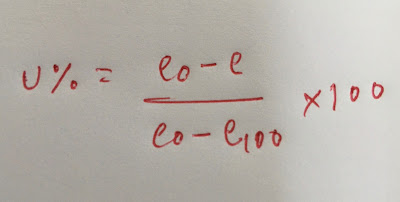 U% = e₀ - e / e₀ - e₁₀₀ × 100